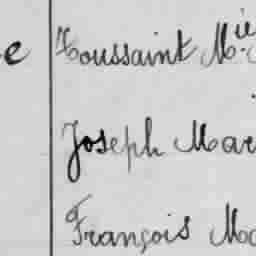 e Toussaint M.ie
Joseph Mar
François Ma